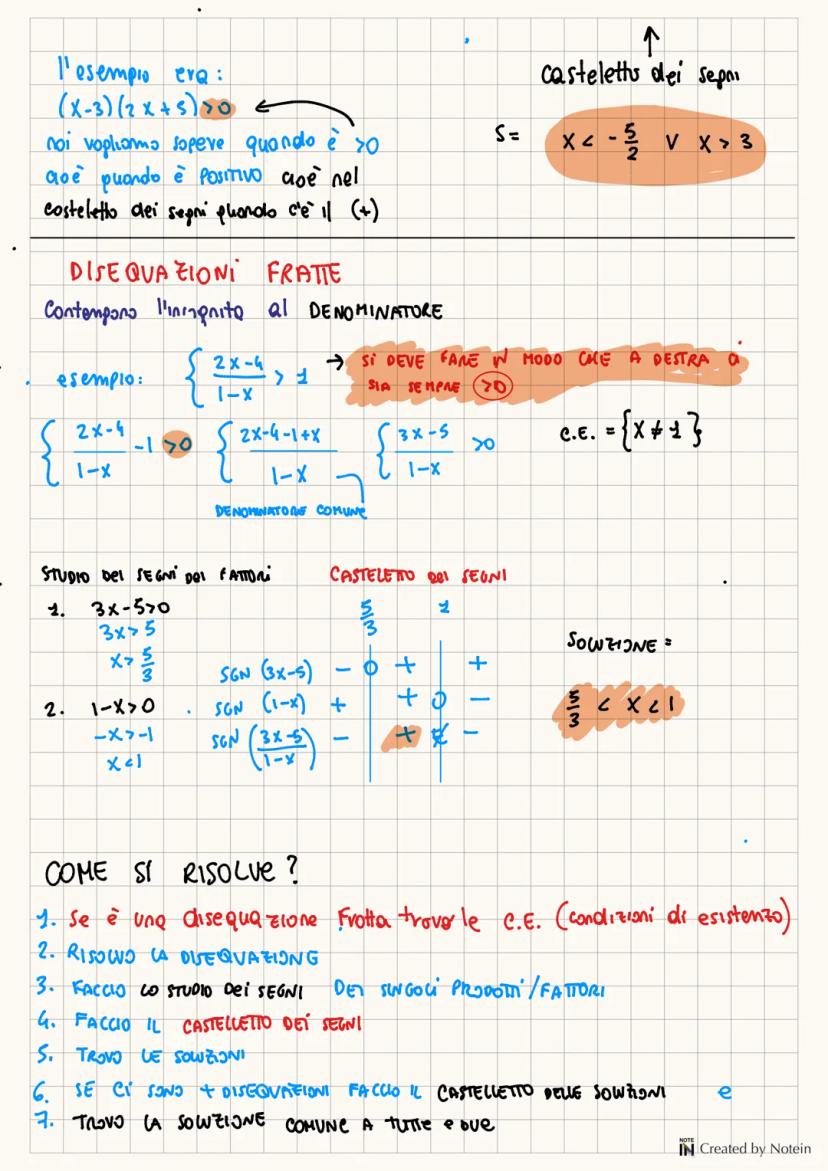 l'esempio era:
(x-3)(2x+5)>0
noi vogliamo sapere quando è >0
cioè quando è POSITIVO cioè nel
casteletto dei segni quando c'è il (+)
casteletto dei segni
S= x < -5/2 V x > 3
DISEQUAZIONI FRATTE
Contengono l'incognita al DENOMINATORE
esempio: { (2x-4)/(1-x) > 1 → SI DEVE FARE IN MODO CHE A DESTRA Ci
SIA SEMPRE >0
{ (2x-4)/(1-x) -1 >0 { (2x-4-1+x)/(1-x) { (3x-5)/(1-x) >0 C.E. = {x≠1}
DENOMINATORE COMUNE
STUDIO DEI SEGNI DEI FATTORI
1. 3x-5>0
3x>5
x>5/3
2. 1-x>0
-x>-1
x<1
CASTELETTO DEI SEGNI
5/3 1
SGN (3x-5) - 0 + +
SGN (1-x) + + 0 -
SGN ((3x-5)/(1-x)) - + ∄ -
SOLUZIONE =
5/3 < x < 1
COME SI RISOLVE?
1. Se è una disequazione fratta trovo le C.E. (condizioni di esistenza)
2. RISOLVO LA DISEQUAZIONE
3. FACCIO LO STUDIO DEI SEGNI DEI SINGOLI PRODOTTI/FATTORI
4. FACCIO IL CASTELLETTO DEI SEGNI
5. TROVO LE SOLUZIONI
6. SE CI SONO + DISEQUAZIONI FACCIO IL CASTELLETTO DELLE SOLUZIONI e
7. TROVO LA SOLUZIONE COMUNE A TUTTE E DUE
NOTE IN Created by Notein